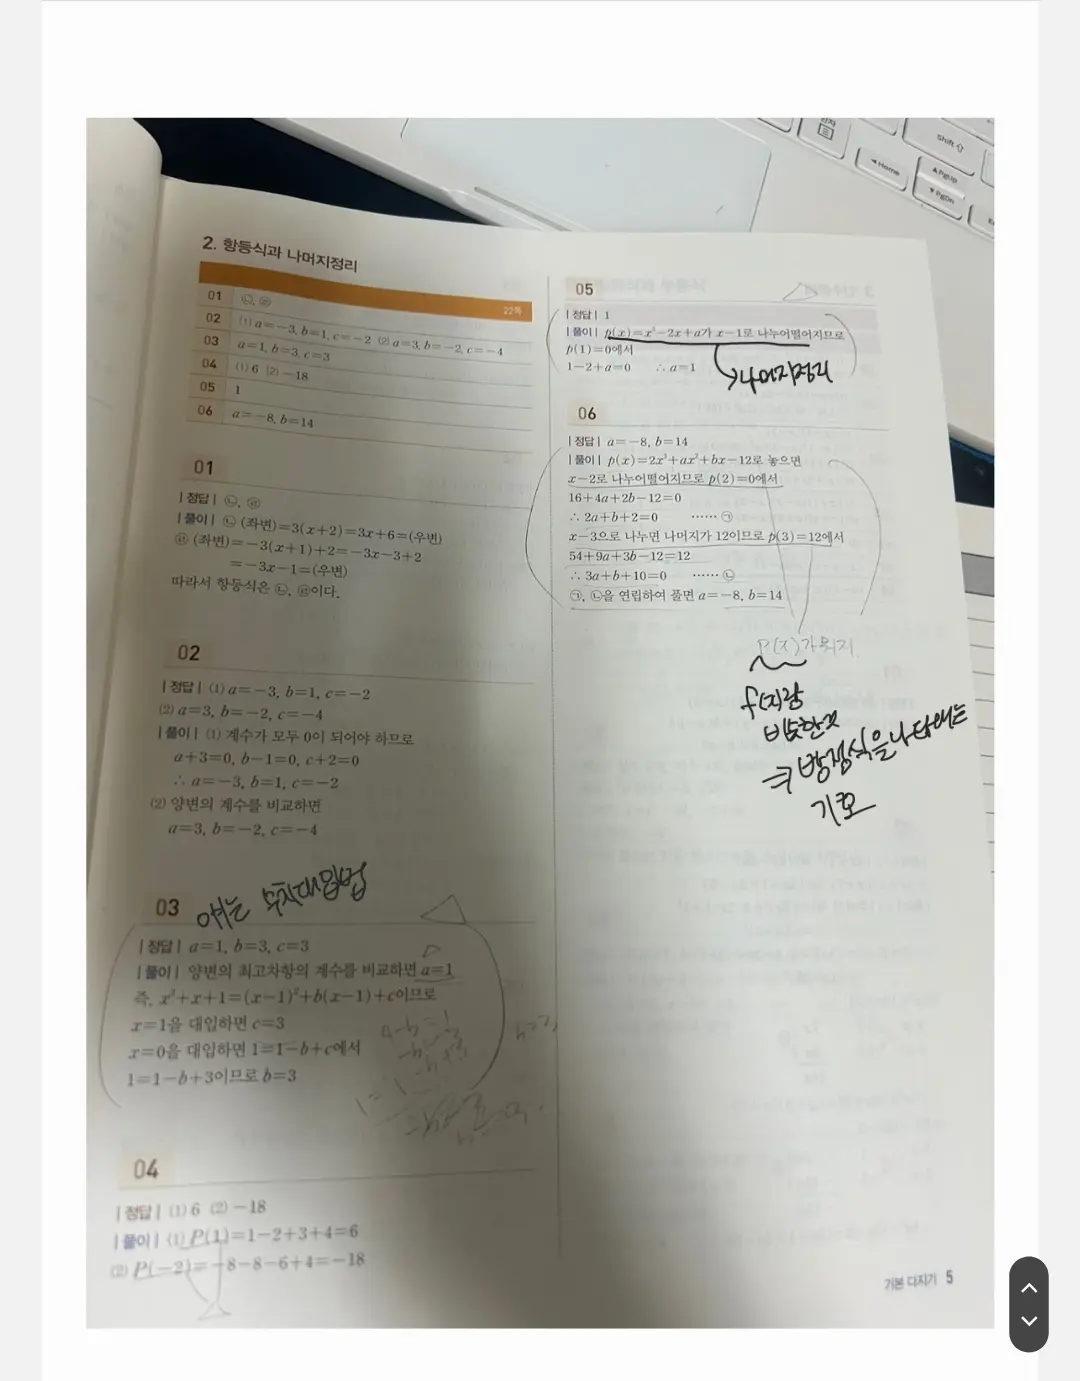 Shift
Home
PgUp
PgDn
2. 항등식과 나머지정리
22쪽
01 ㉡, ㉣
02 (1) a=-3, b=1, c=-2 (2) a=3, b=-2, c=-4
03 a=1, b=3, c=3
04 (1) 6 (2) -18
05 1
06 a=-8, b=14
01
|정답| ㉡, ㉣
|풀이| ㉡ (좌변)=3(x+2)=3x+6=(우변)
㉣ (좌변)=-3(x+1)+2=-3x-3+2
=-3x-1=(우변)
따라서 항등식은 ㉡, ㉣이다.
02
|정답| (1) a=-3, b=1, c=-2
(2) a=3, b=-2, c=-4
|풀이| (1) 계수가 모두 0이 되어야 하므로
a+3=0, b-1=0, c+2=0
∴ a=-3, b=1, c=-2
(2) 양변의 계수를 비교하면
a=3, b=-2, c=-4
03 얘는 수치대입법
|정답| a=1, b=3, c=3
|풀이| 양변의 최고차항의 계수를 비교하면 a=1
즉, x²+x+1=(x-1)²+b(x-1)+c이므로
x=1을 대입하면 c=3
x=0을 대입하면 1=1-b+c에서
1=1-b+3이므로 b=3
04
|정답| (1) 6 (2) -18
|풀이| (1) P(1)=1-2+3+4=6
(2) P(-2)=-8-8-6+4=-18
05
|정답| 1
|풀이| p(x)=x³-2x+a가 x-1로 나누어떨어지므로
p(1)=0에서
1-2+a=0 ∴ a=1
나머지정리
06
|정답| a=-8, b=14
|풀이| p(x)=2x³+ax²+bx-12로 놓으면
x-2로 나누어떨어지므로 p(2)=0에서
16+4a+2b-12=0
∴ 2a+b+2=0 ⋯⋯ ㉠
x-3으로 나누면 나머지가 12이므로 p(3)=12에서
54+9a+3b-12=12
∴ 3a+b+10=0 ⋯⋯ ㉡
㉠, ㉡을 연립하여 풀면 a=-8, b=14
P(x)가 뭐지
f(x)랑
비슷한것
⇒ 방정식을 나타내는
기호
기본 다지기 5